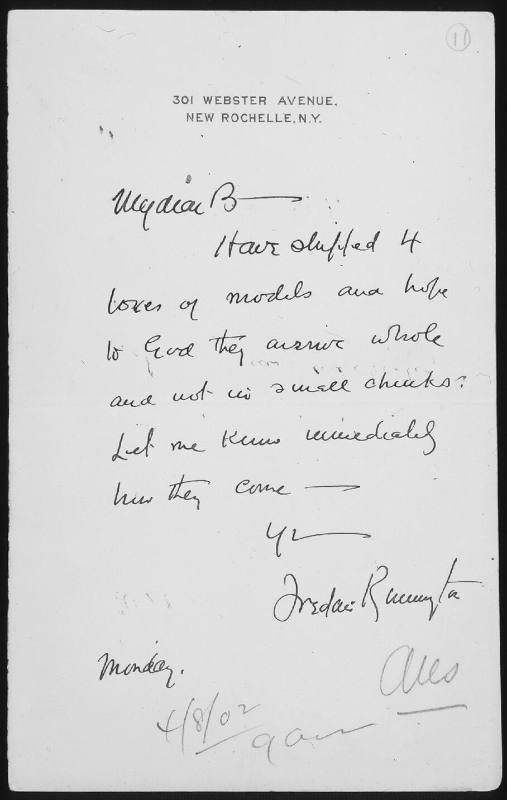 11
301 WEBSTER AVENUE.
NEW ROCHELLE, N.Y.
My dear B——
Have shipped 4
boxes of models and hope
to God they arrive whole
and not in small chunks.
Let me know immediately
how they come —
Yr ——
Frederic Remington
Monday.
Ans
4/8/02